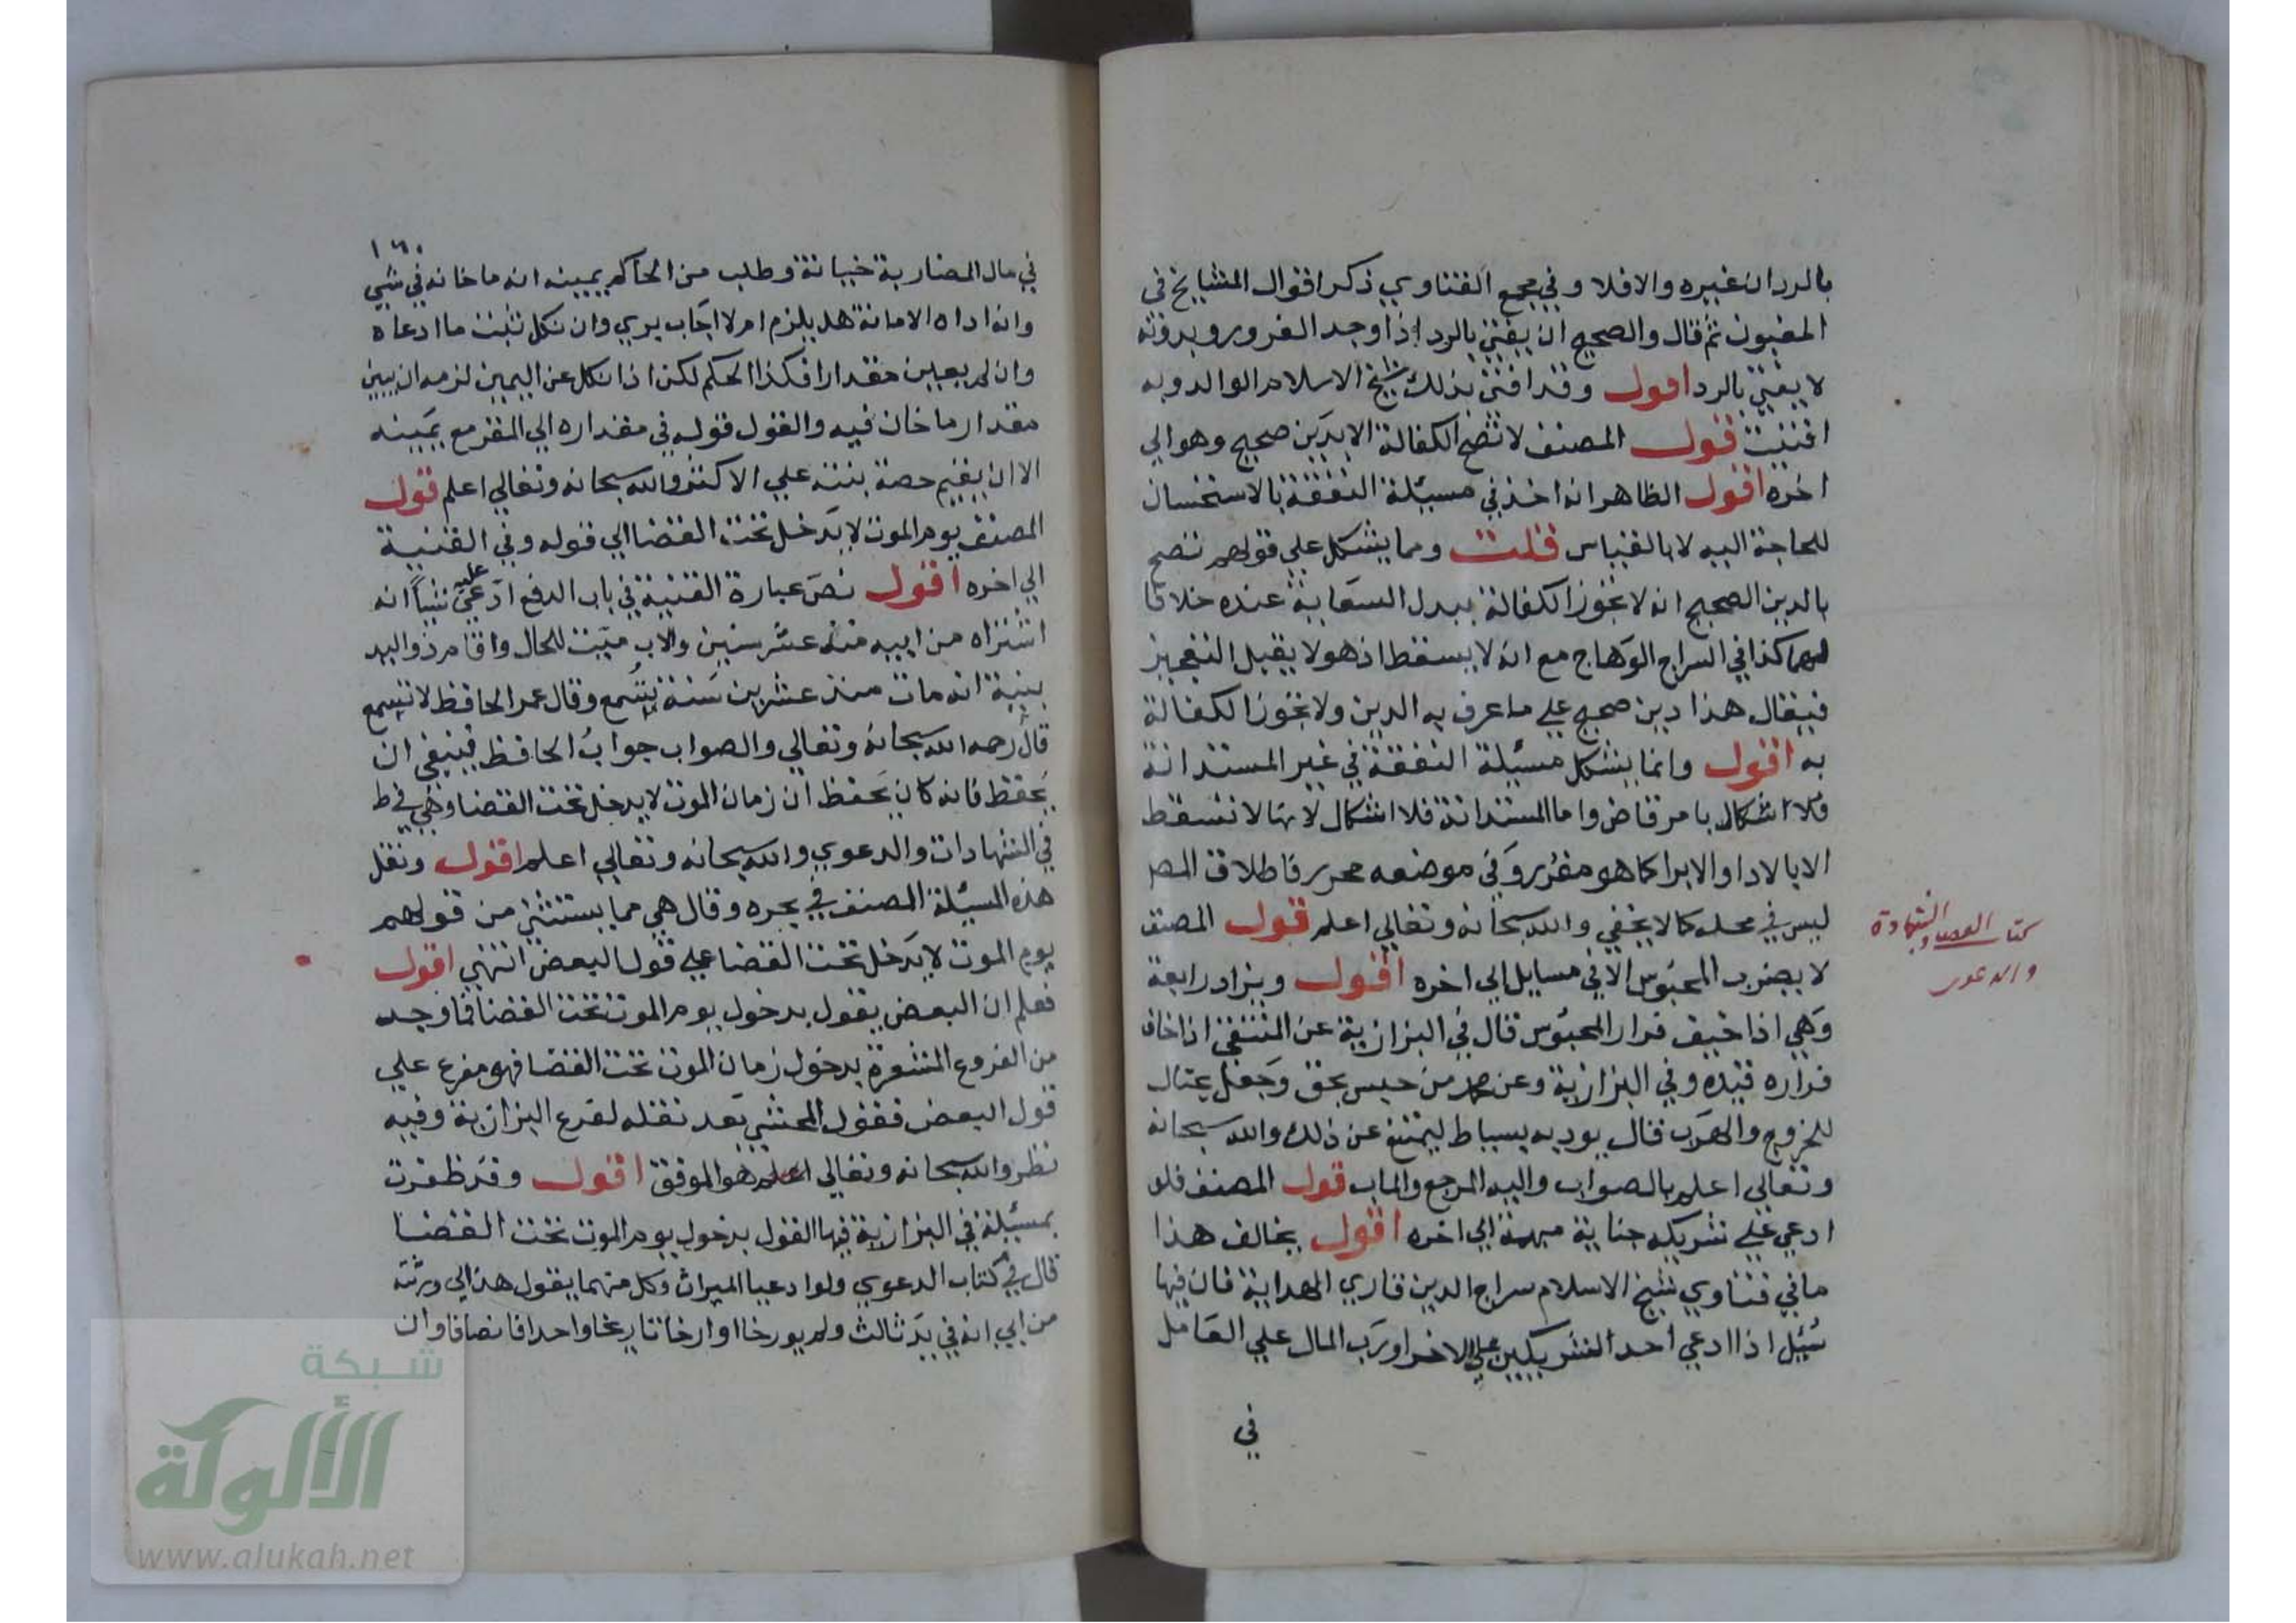 بالرد ان غيره والا فلا وفي مجمع الفتاوي ذكر اقوال المشايخ في
المغبون ثم قال والصحيح ان يفتي بالرد اذا وجد الغرور وبدونه
لا يفتي بالرد اقول وقد افتى بذلك شيخ الاسلام الوالد وبه
افتيت قول المصنف لا تصح الكفالة الا بدين صحيح وهو الي
اخره اقول الظاهر انه اخذ في مسيلة النفقة بالاستحسان
للحاجة اليه لا بالقياس قلت ومما يشكل علي قولهم تصح
بالدين الصحيح انه لا تجوز الكفالة ببدل السعاية عنده خلافا
لهما كذا في السراج الوهاج مع انه لا يسقط اذ هو لا يقبل التعجيز
فيقال هذا دين صحيح علي ما عرف به الدين ولا تجوز الكفالة
به اقول وانما يشكل مسيلة النفقة في غير المستدانة
فلا اشكال بامر قاض واما المستدانة فلا اشكال لانها لا تسقط
الا بالادا او الابرا كما هو مقرر وفي موضعه محرر فاطلاق المص
ليس في محله كما لا يخفي والله سبحانه وتعالي اعلم قول المصنف
لا يضرب المحبوس الا في مسايل الي اخره اقول ويزاد رابعة
وهي اذا خيف فرار المحبوس قال في البزازية عن المنتقي اذا خاف
فراره قيده وفي البزازية وعن محمد من حبس بحق وجعل يحتال
للخروج والهرب قال يوديه بسياط ليمتنع عن ذلك والله سبحانه
وتعالي اعلم بالصواب واليه المرجع والماب قول المصنف فلو
ادعي علي شريكه جناية مبهمة الي اخره اقول يخالف هذا
ما في فتاوي شيخ الاسلام سراج الدين قاري الهداية فان فيها
سئيل اذا ادعي احد الشريكين علي الاخر او رب المال علي العامل
في
كتاب القضاء والشهادة
والدعوى
١٦٠
في مال المضاربة خيانة وطلب من الحاكم يمينه انه ما خانه في شي
وانه اداه الامانة هل يلزم ام لا اجاب يري وان نكل ثبت ما ادعاه
وان لم يعين مقدارا فكذا الحكم لكن اذا نكل عن اليمين لزمه ان يبين
مقدار ما خان فيه والقول قوله في مقداره الي المقر مع يمينه
الا ان يقيم حصة بينة علي الاكثر والله سبحانه وتعالي اعلم قول
المصنف يوم الموت لا يدخل تحت القضا الي قوله وفي القنية
الي اخره اقول نص عبارة القنية في باب الدفع ادعي عليه شيا انه
اشتراه من ابيه منذ عشر سنين والاب ميت للحال واقام ذو اليد
بينة انه مات منذ عشرين سنة تسمع وقال عمر الحافظ لا تسمع
قال رحمه الله سبحانه وتعالي والصواب جواب الحافظ فينبغي ان
يحفظ فانه كان يحفظ ان زمان الموت لا يدخل تحت القضا وهي في ط
في الشهادات والدعوي والله سبحانه وتعالي اعلم اقول ونقل
هذه المسيلة المصنف في بحره وقال هي مما يستثني من قولهم
يوم الموت لا يدخل تحت القضا علي قول البعض انتهي اقول
فعلم ان البعض يقول بدخول يوم الموت تحت القضا فما وجد
من الفروع المشعرة بدخول زمان الموت تحت القضا فهو مفرع علي
قول البعض فقول المحشي بعد نقله لفرع البزازية وفيه
نظر والله سبحانه وتعالي اعلم هو الموفق اقول وقد ظفرت
بمسيلة في البزازية فيها القول بدخول يوم الموت تحت القضا
قال في كتاب الدعوي ولو ادعيا الميراث وكل منهما يقول هذا لي ورثته
من ابي انه في يد ثالث ولم يورخا او ارخا تاريخا واحدا فانصافا وان
شبكة
الألوكة
www.alukah.net